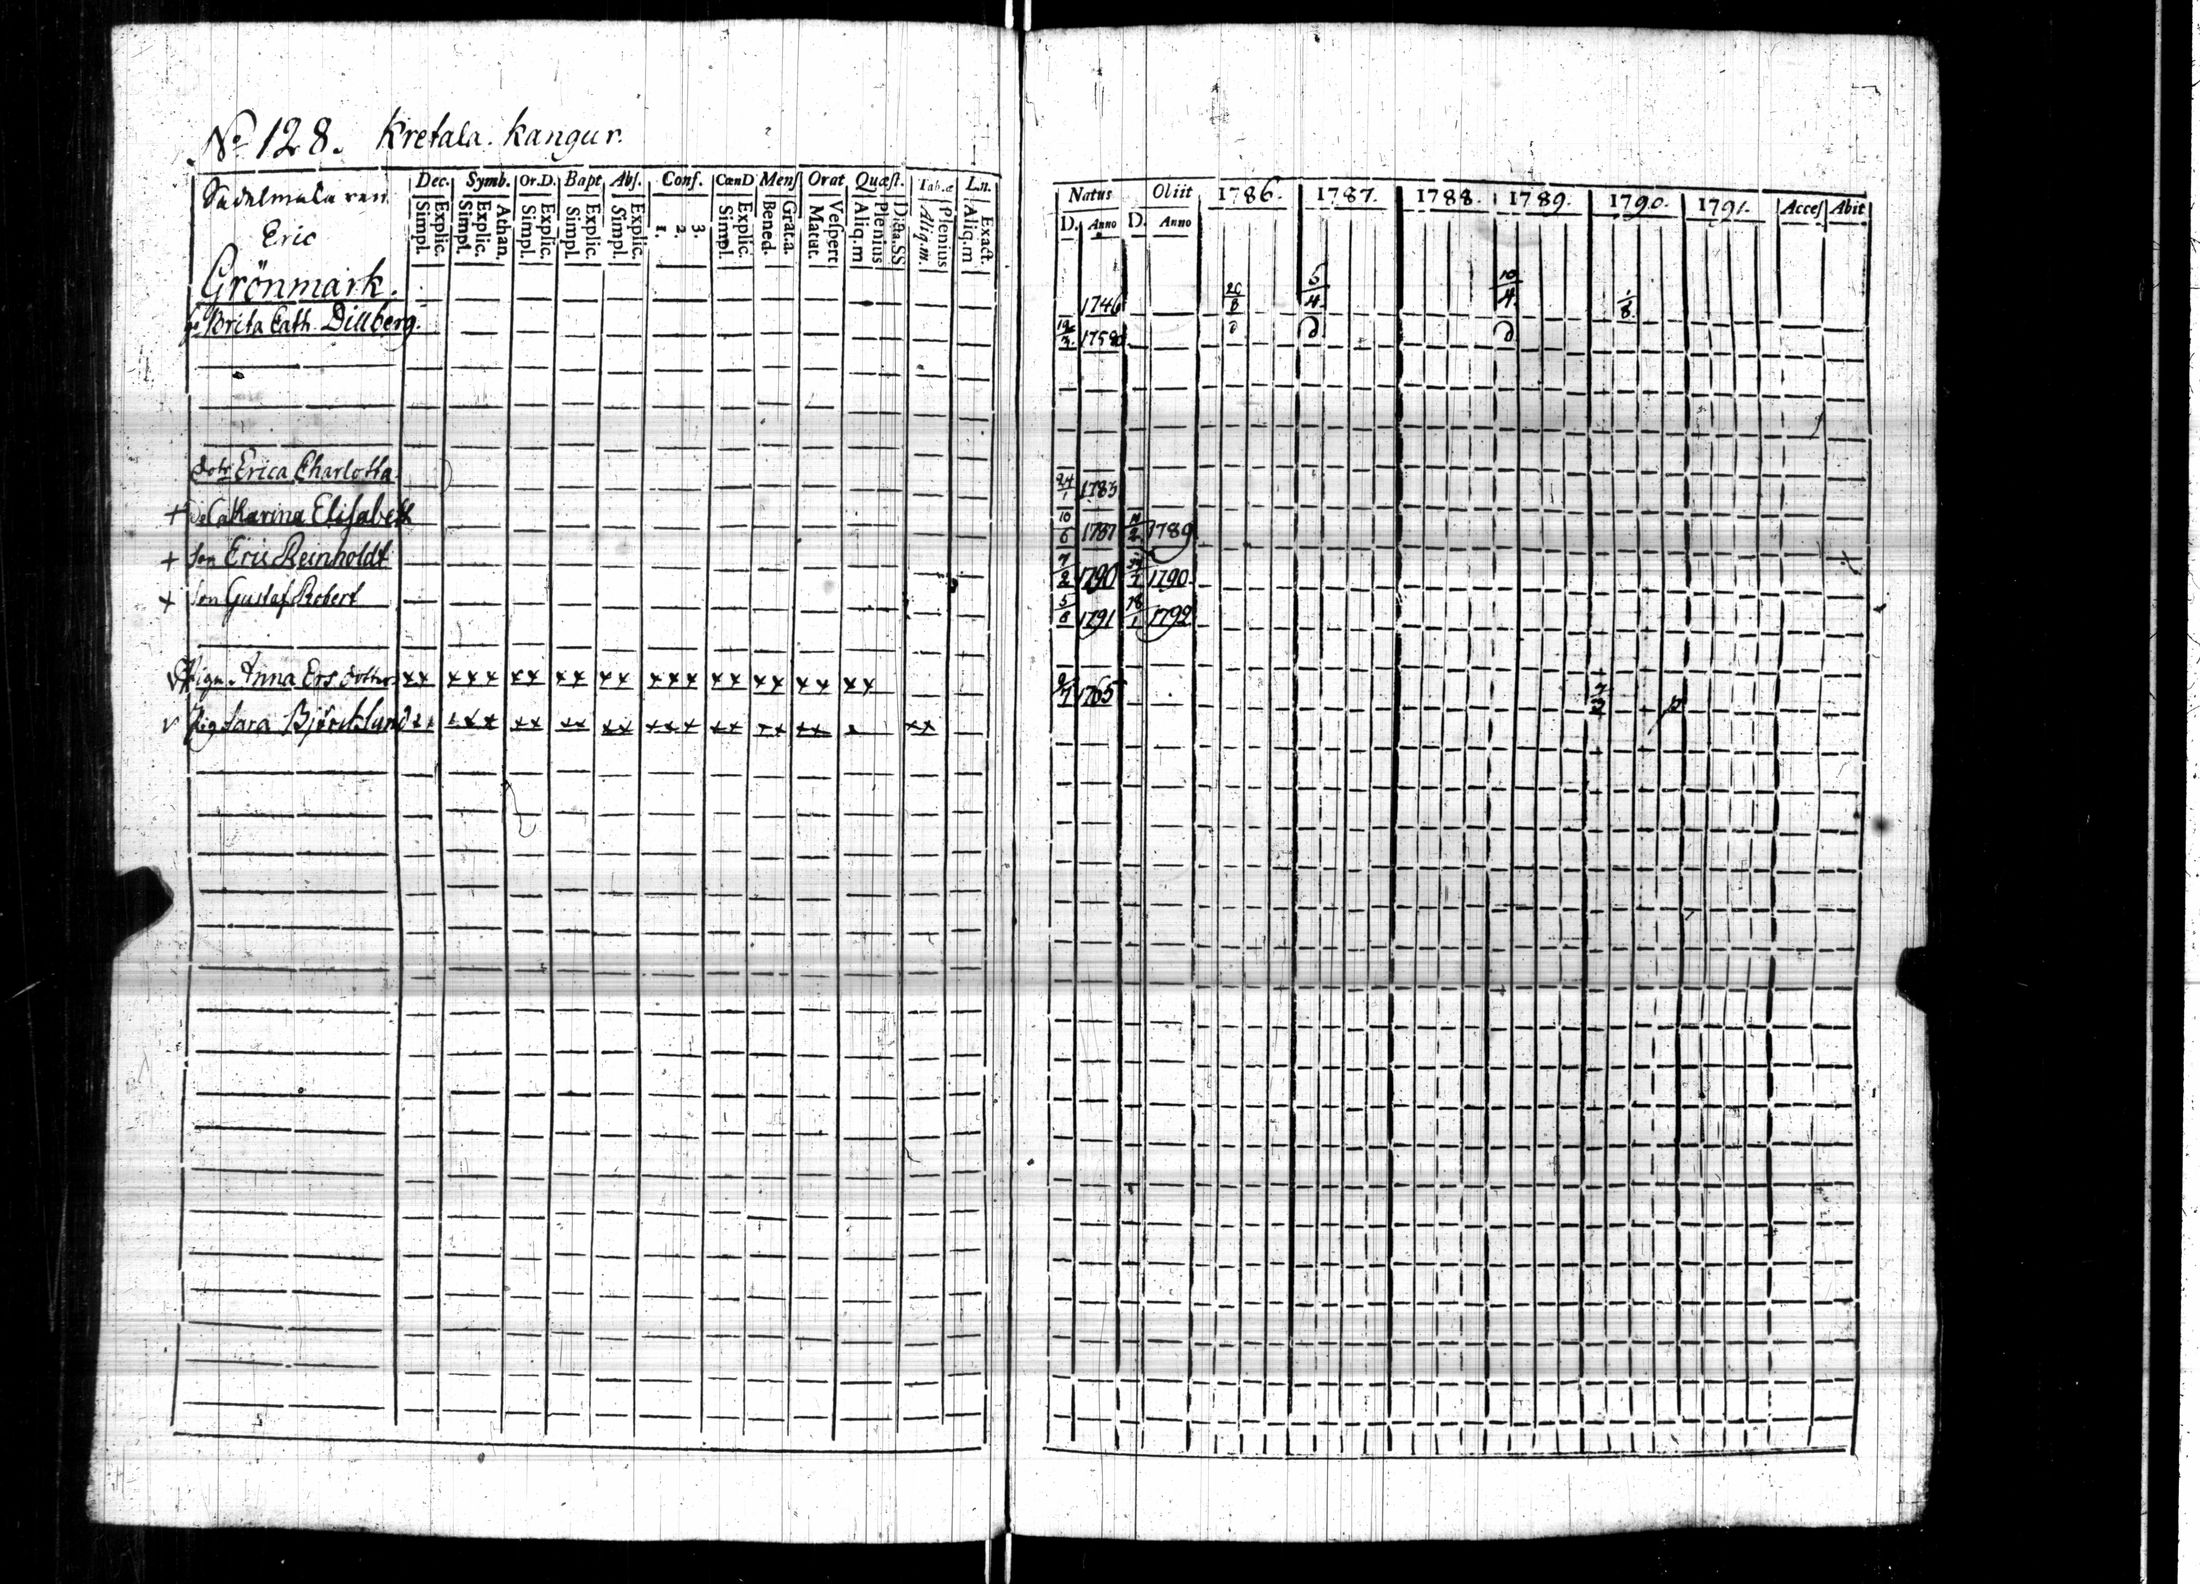 No 128. Kretala. Kangur.
Dec. Symb. Or.D. Bapt Abs. Conf. CœnD Mens Orat Quæst. Tabæ Ln.
Explic. Simpl. Athan. Explic. Simpl. Explic. Simpl. Explic. Simpl. Explic. Simpl. 1. 2. 3. Explic. Simpl. Grat.a. Bened. Vespert Matut. Dicta.SS Plenius Aliq.m Plenius Aliq.m. Exact. Aliq.m
Natus Obiit 1786. 1787. 1788. 1789. 1790. 1791. Acces Abit
D. Anno D. Anno
Eric
Grönmark. 1746 5/4 10/4 1/8
Brita Cath. Dillberg.
Erica Charlotta 24/1 1783
+ Catharina Elisabeth 10/6 1787 1789
+ Son Eric Reinholdt 7/2 1790 1790
+ Son Gustaf Robert 5/8 1791 18/1 1792
Pign. Anna Ers dotter xx xxx xx xx xx xxx xx xx xx xx 1765
v Pig Sara Björcklund